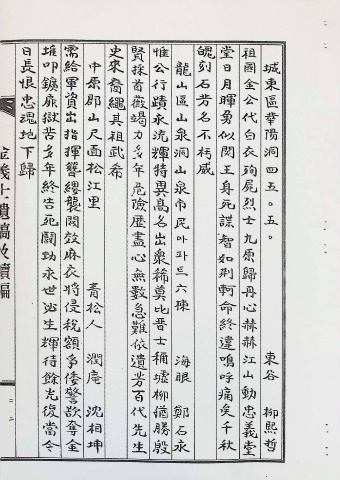 城東區華陽洞四五。五。 東谷 柳熙哲
祖國金公代白衣殉屍烈士九原歸丹心赫赫江山動忠義堂
堂日月暉勇似関王身死諜智如荊軻命終違嗚呼痛矣千秋
魄刻石芳名不朽威
龍山區山泉洞山泉市民아파트六棟 海眼 鄭石永
惟公行蹟永流輝特異高名出衆稀莫比晋士稱墟柳德勝殷
賢採首薇竭力多年危險歷盡心無數急難依遺芳百代先生
史來裔繩其祖武希
中原郡山尺面松江里 靑松人 潤庵 沈相坤
需給軍資出指揮簪纓襲闕效麻衣將侵稅額爭倭警欲奪金
堆叩鑛扉獄苦多年終告死鬪功永世逃生輝待餘光復當今
日長恨忠魂地下歸
義士遺稿及續編